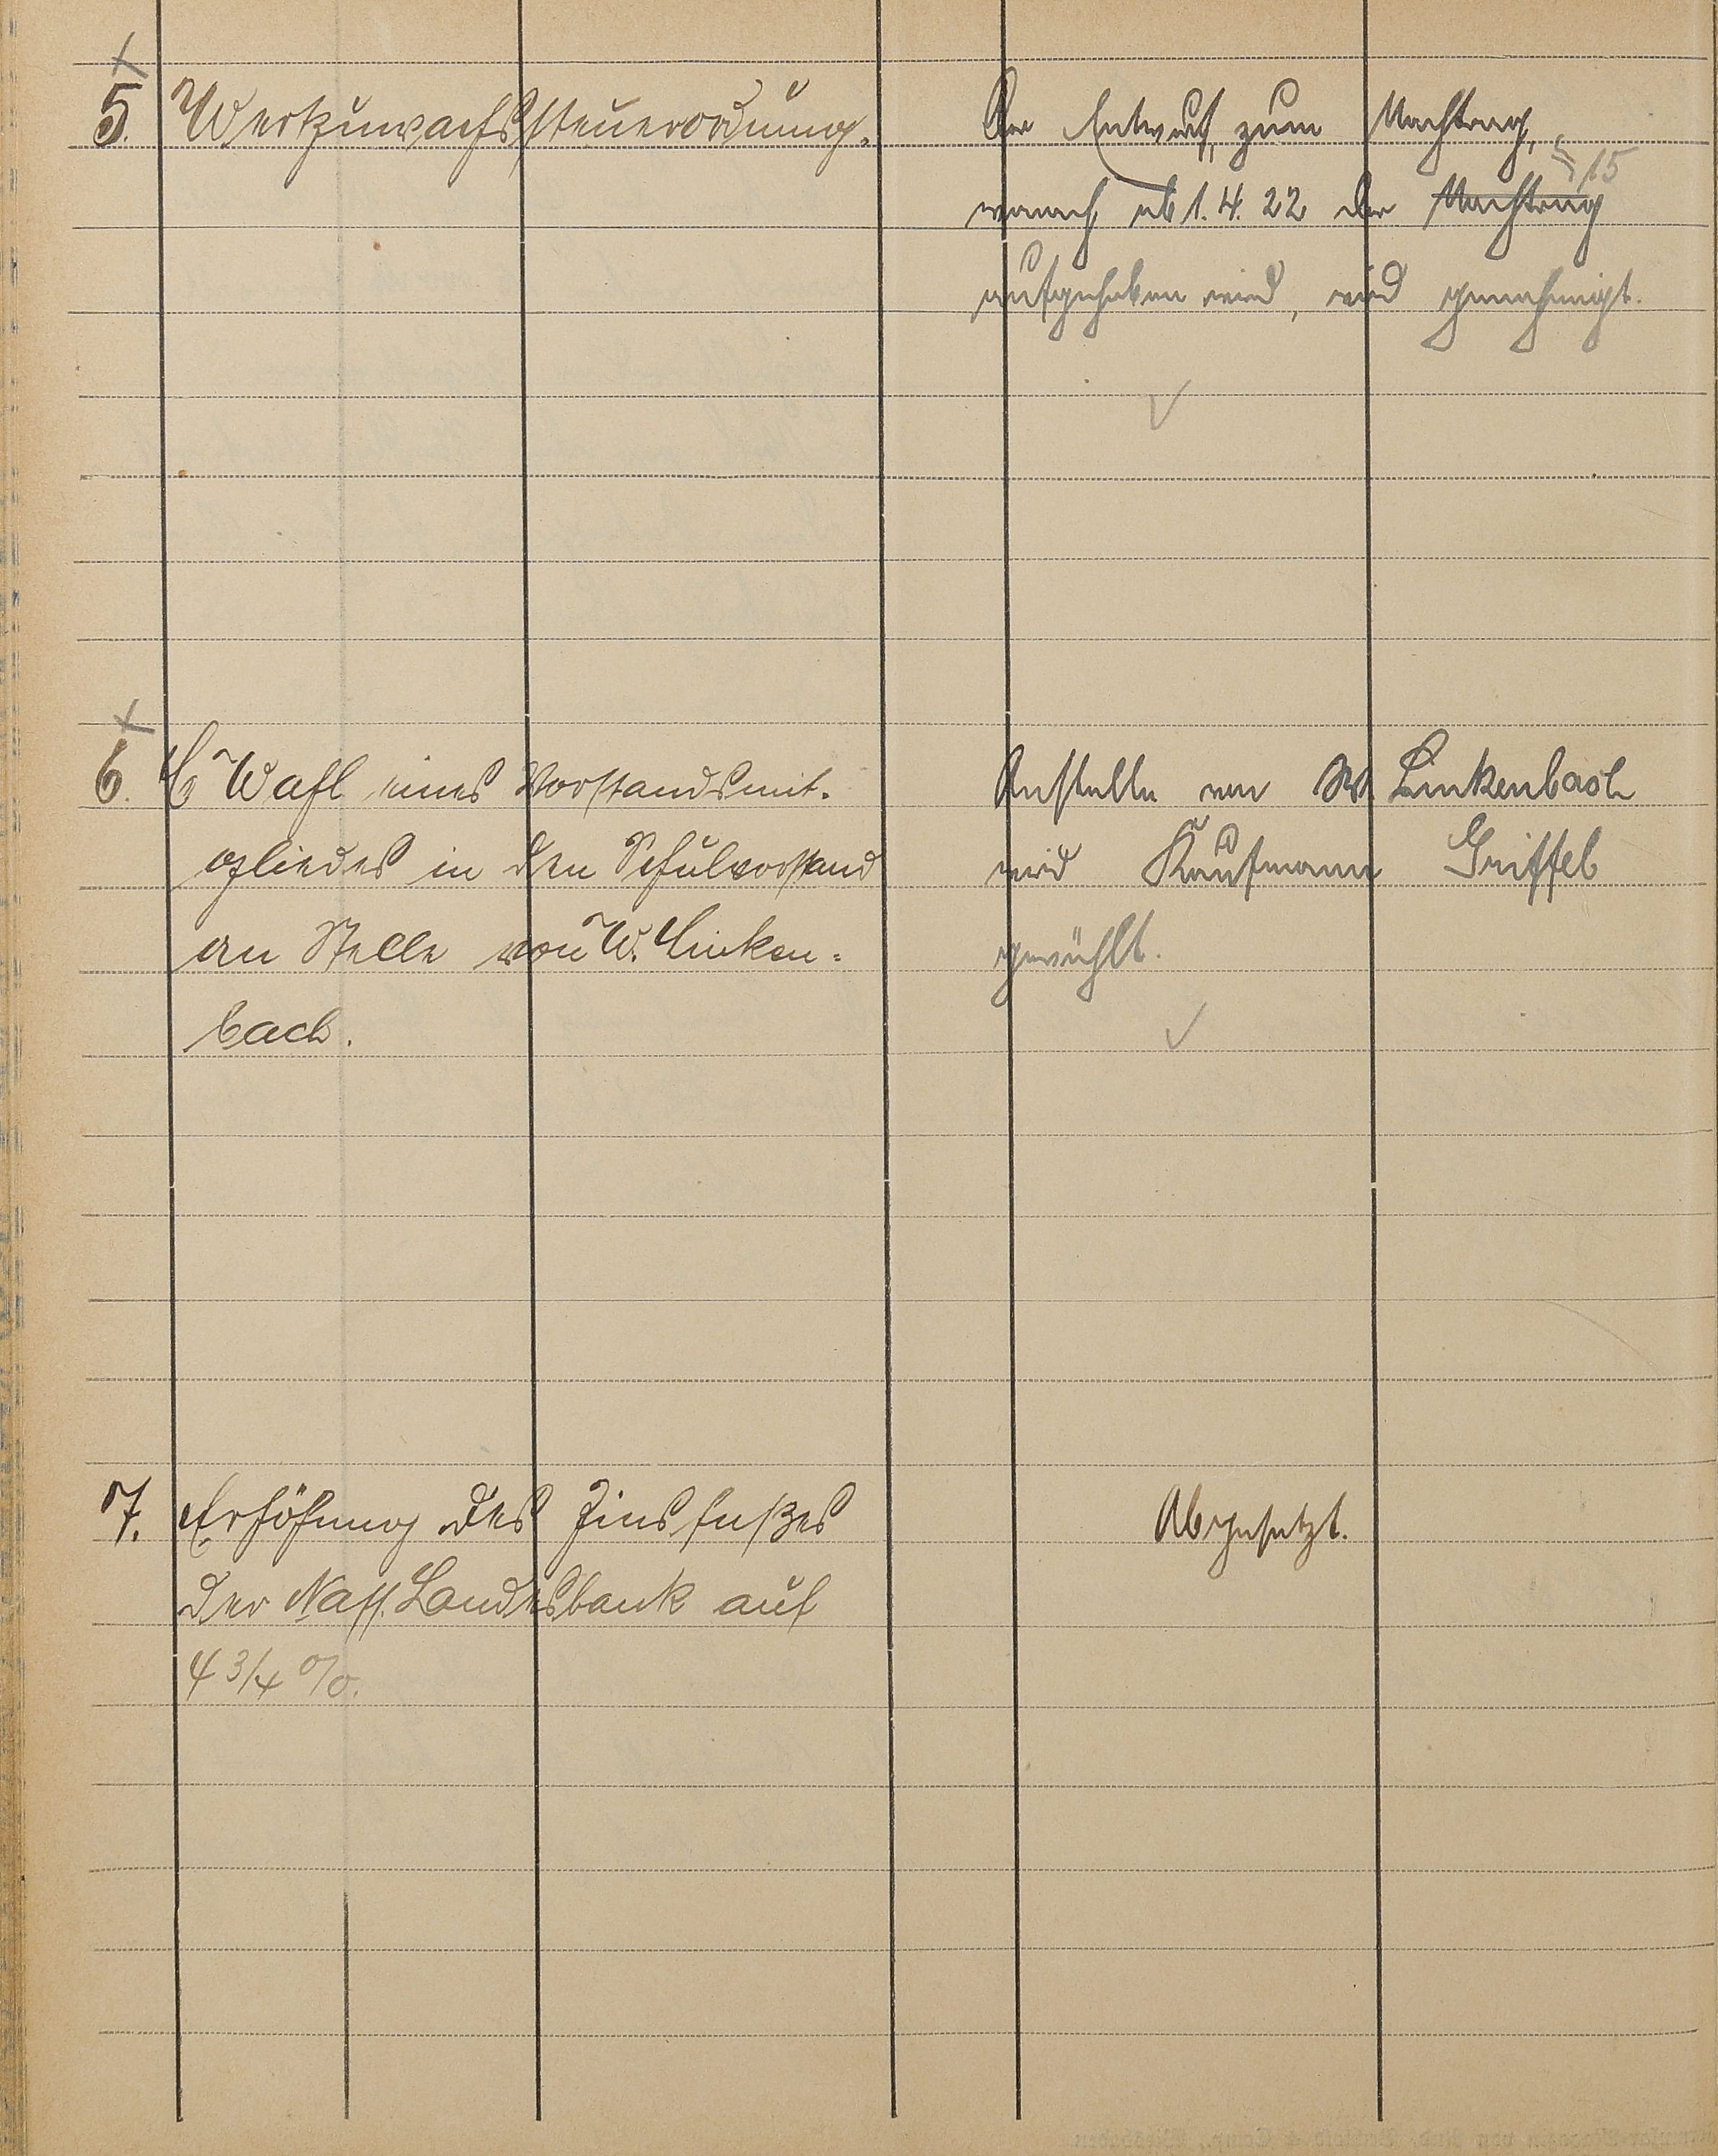 5. Wertzuwachssteuerordnung.
Der Entwurf zum Nachtrag,
wonach ab 1. 4. 22 der Nachtrag § 15
aufgehoben wird, wird genehmigt.
6. Wahl eines Vorstandsmit-
gliedes in den Schulvorstand
an Stelle von W. Linken-
bach.
Anstelle von W. Linkenbach
wird Kaufmann Griffel
gewählt.
7. Erhöhung des Zinsfußes
der Nass. Landesbank auf
4 3/4 %.
Abgesetzt.